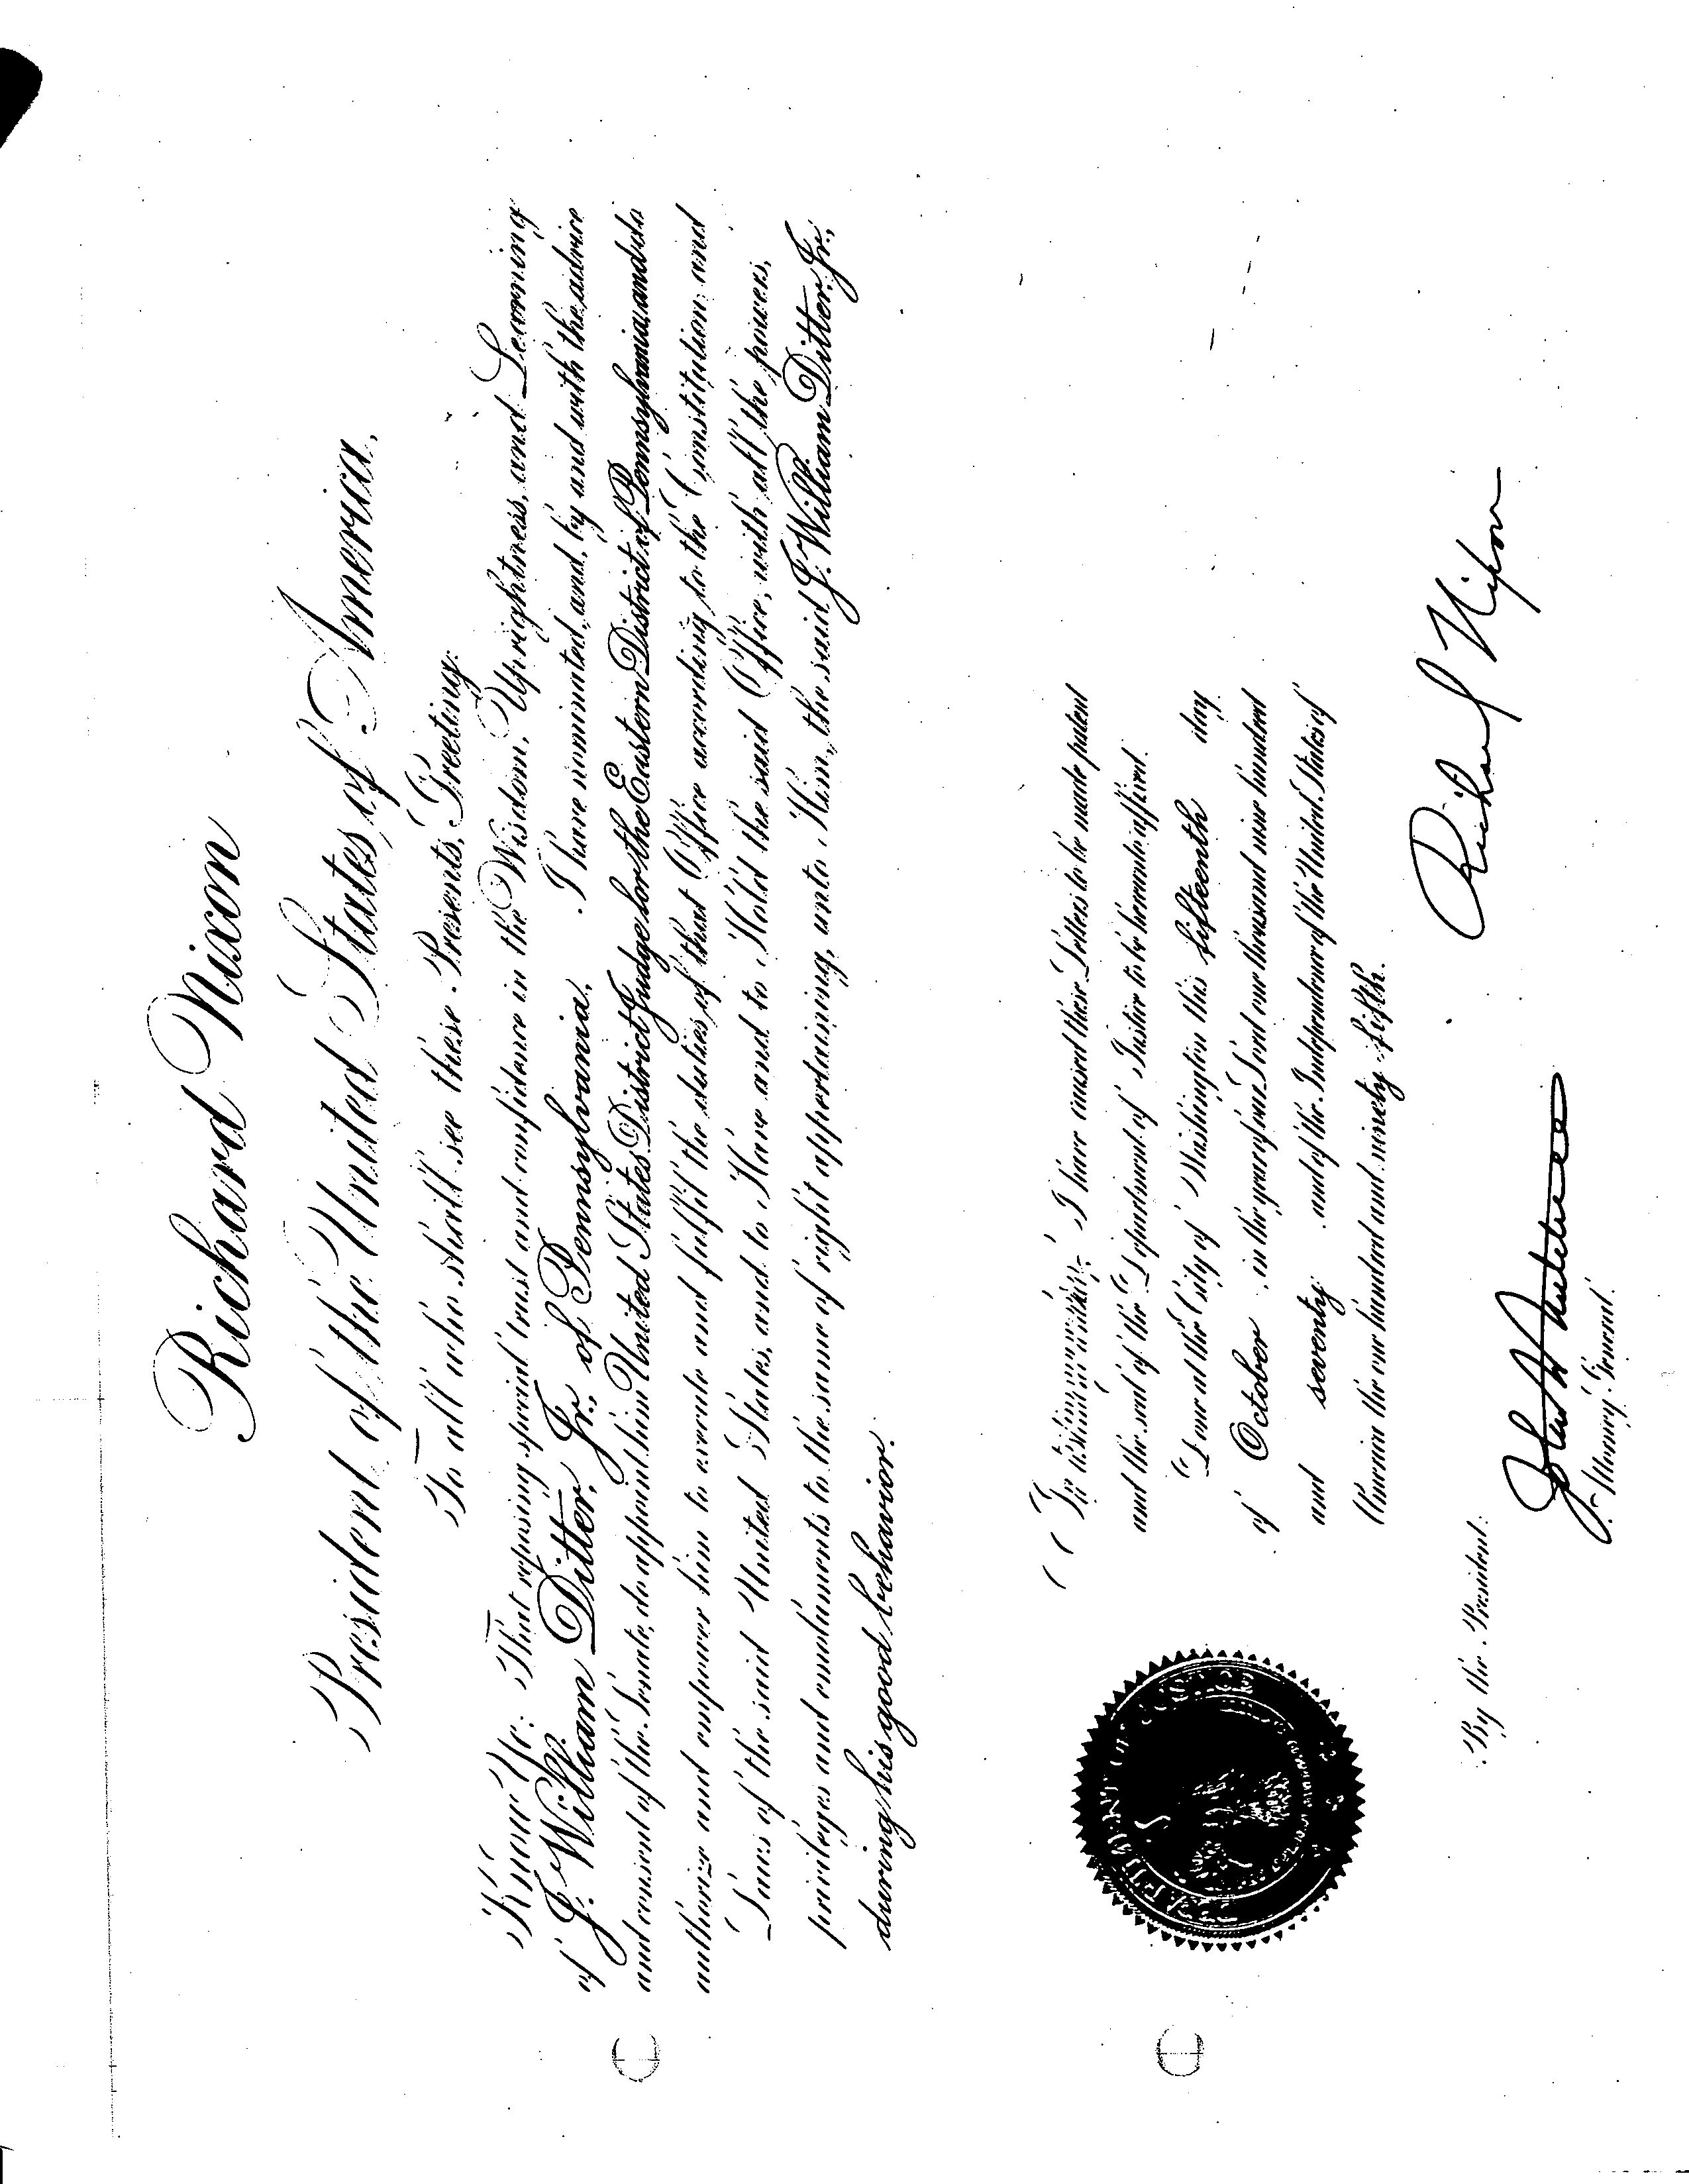 Richard Nixon
President of the United States of America,
To all who shall see these Presents, Greeting:
Know Ye; That reposing special trust and confidence in the Wisdom, Uprightness, and Learning
of J. William Ditter, Jr., of Pennsylvania, I have nominated, and, by and with the advice
and consent of the Senate, do appoint him United States District Judge for the Eastern District of Pennsylvania, and do
authorize and empower him to execute and fulfil the duties of that Office according to the Constitution and
Laws of the said United States, and to Have and to Hold the said Office, with all the powers,
privileges and emoluments to the same of right appertaining, unto Him, the said J. William Ditter, Jr.,
during his good behavior.
In testimony whereof, I have caused these Letters to be made patent
and the seal of the Department of Justice to be hereunto affixed.
Done at the City of Washington this fifteenth day
of October, in the year of our Lord one thousand nine hundred
and seventy and of the Independence of the United States of
America the one hundred and ninety-fifth.
Richard Nixon
By the President:
John N. Mitchell
Attorney General.